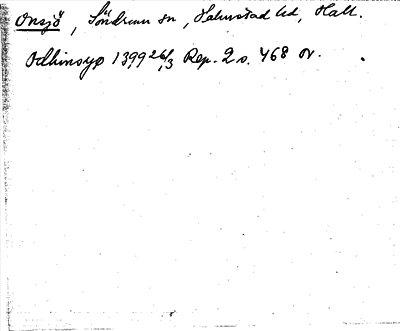 Onsjö, Söndrum sn, Halmstad hd, Hall.
Odhinsyø 1399 26/3 Rep. 2 s. 468 or.